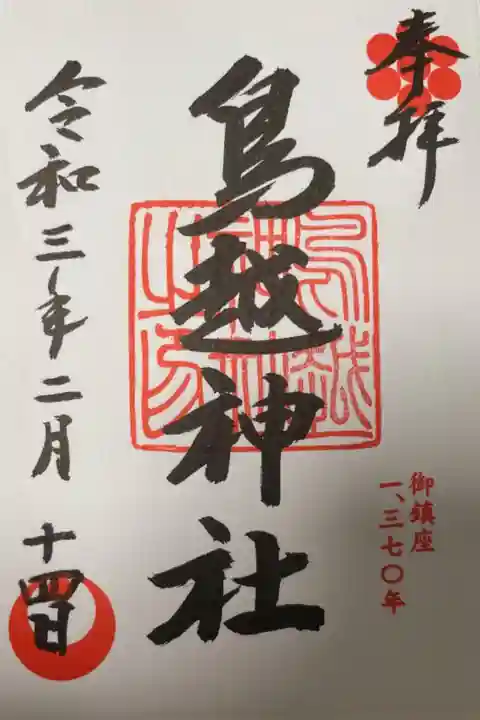 奉拝
御鎮座
一、三七〇年
鳥越神社
令和三年二月十四日